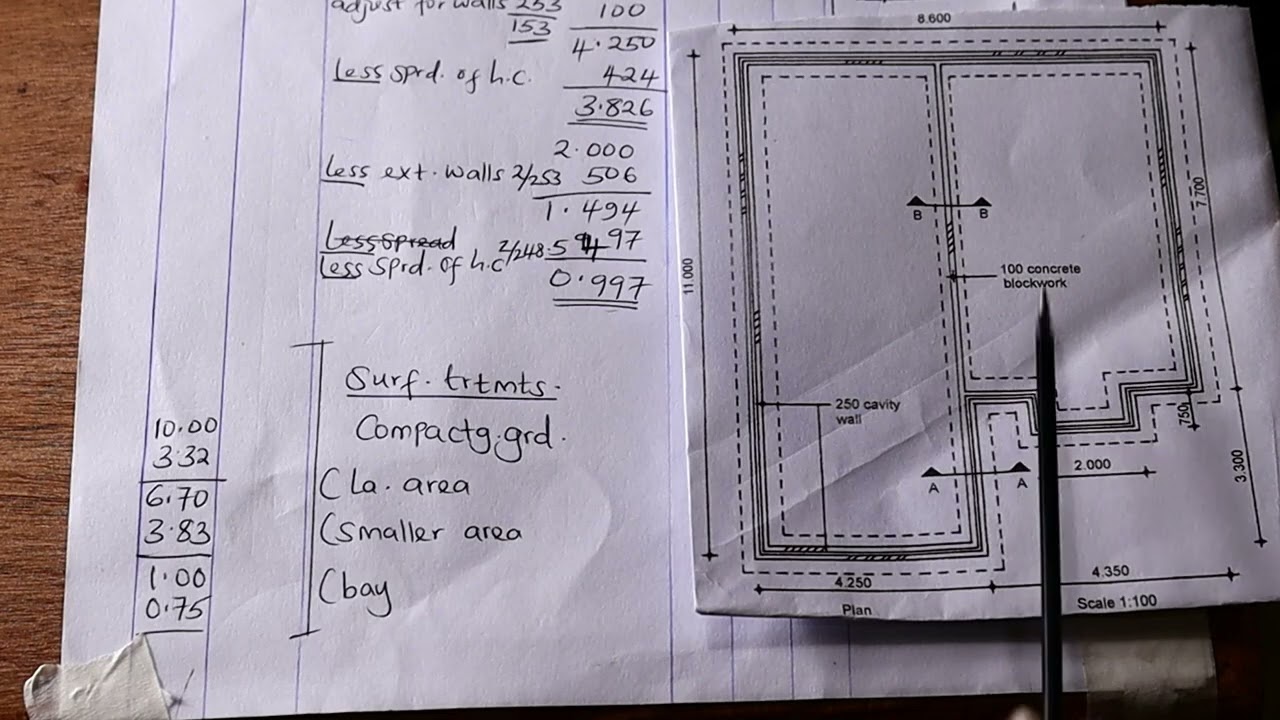 adjust for walls 253 100
153
4.250
Less Sprd. of h.c. 424
3.826
2.000
Less ext. walls 2/253 506
1.494
Less spread
Less Sprd. of h.c 2/248.5 497
0.997
Surf. trtmts.
Compactg. grd.
10.00
3.32
(la. area
6.70
3.83
(smaller area
1.00
0.75
(bay
8.600
11.000
7.700
B B
100 concrete
blockwork
250 cavity
wall
750
2.000
3.300
A A
4.250
4.350
Plan
Scale 1:100